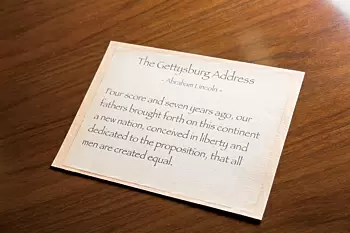 The Gettysburg Address
- Abraham Lincoln -
Four score and seven years ago, our
fathers brought forth on this continent
a new nation, conceived in liberty and
dedicated to the proposition, that all
men are created equal.